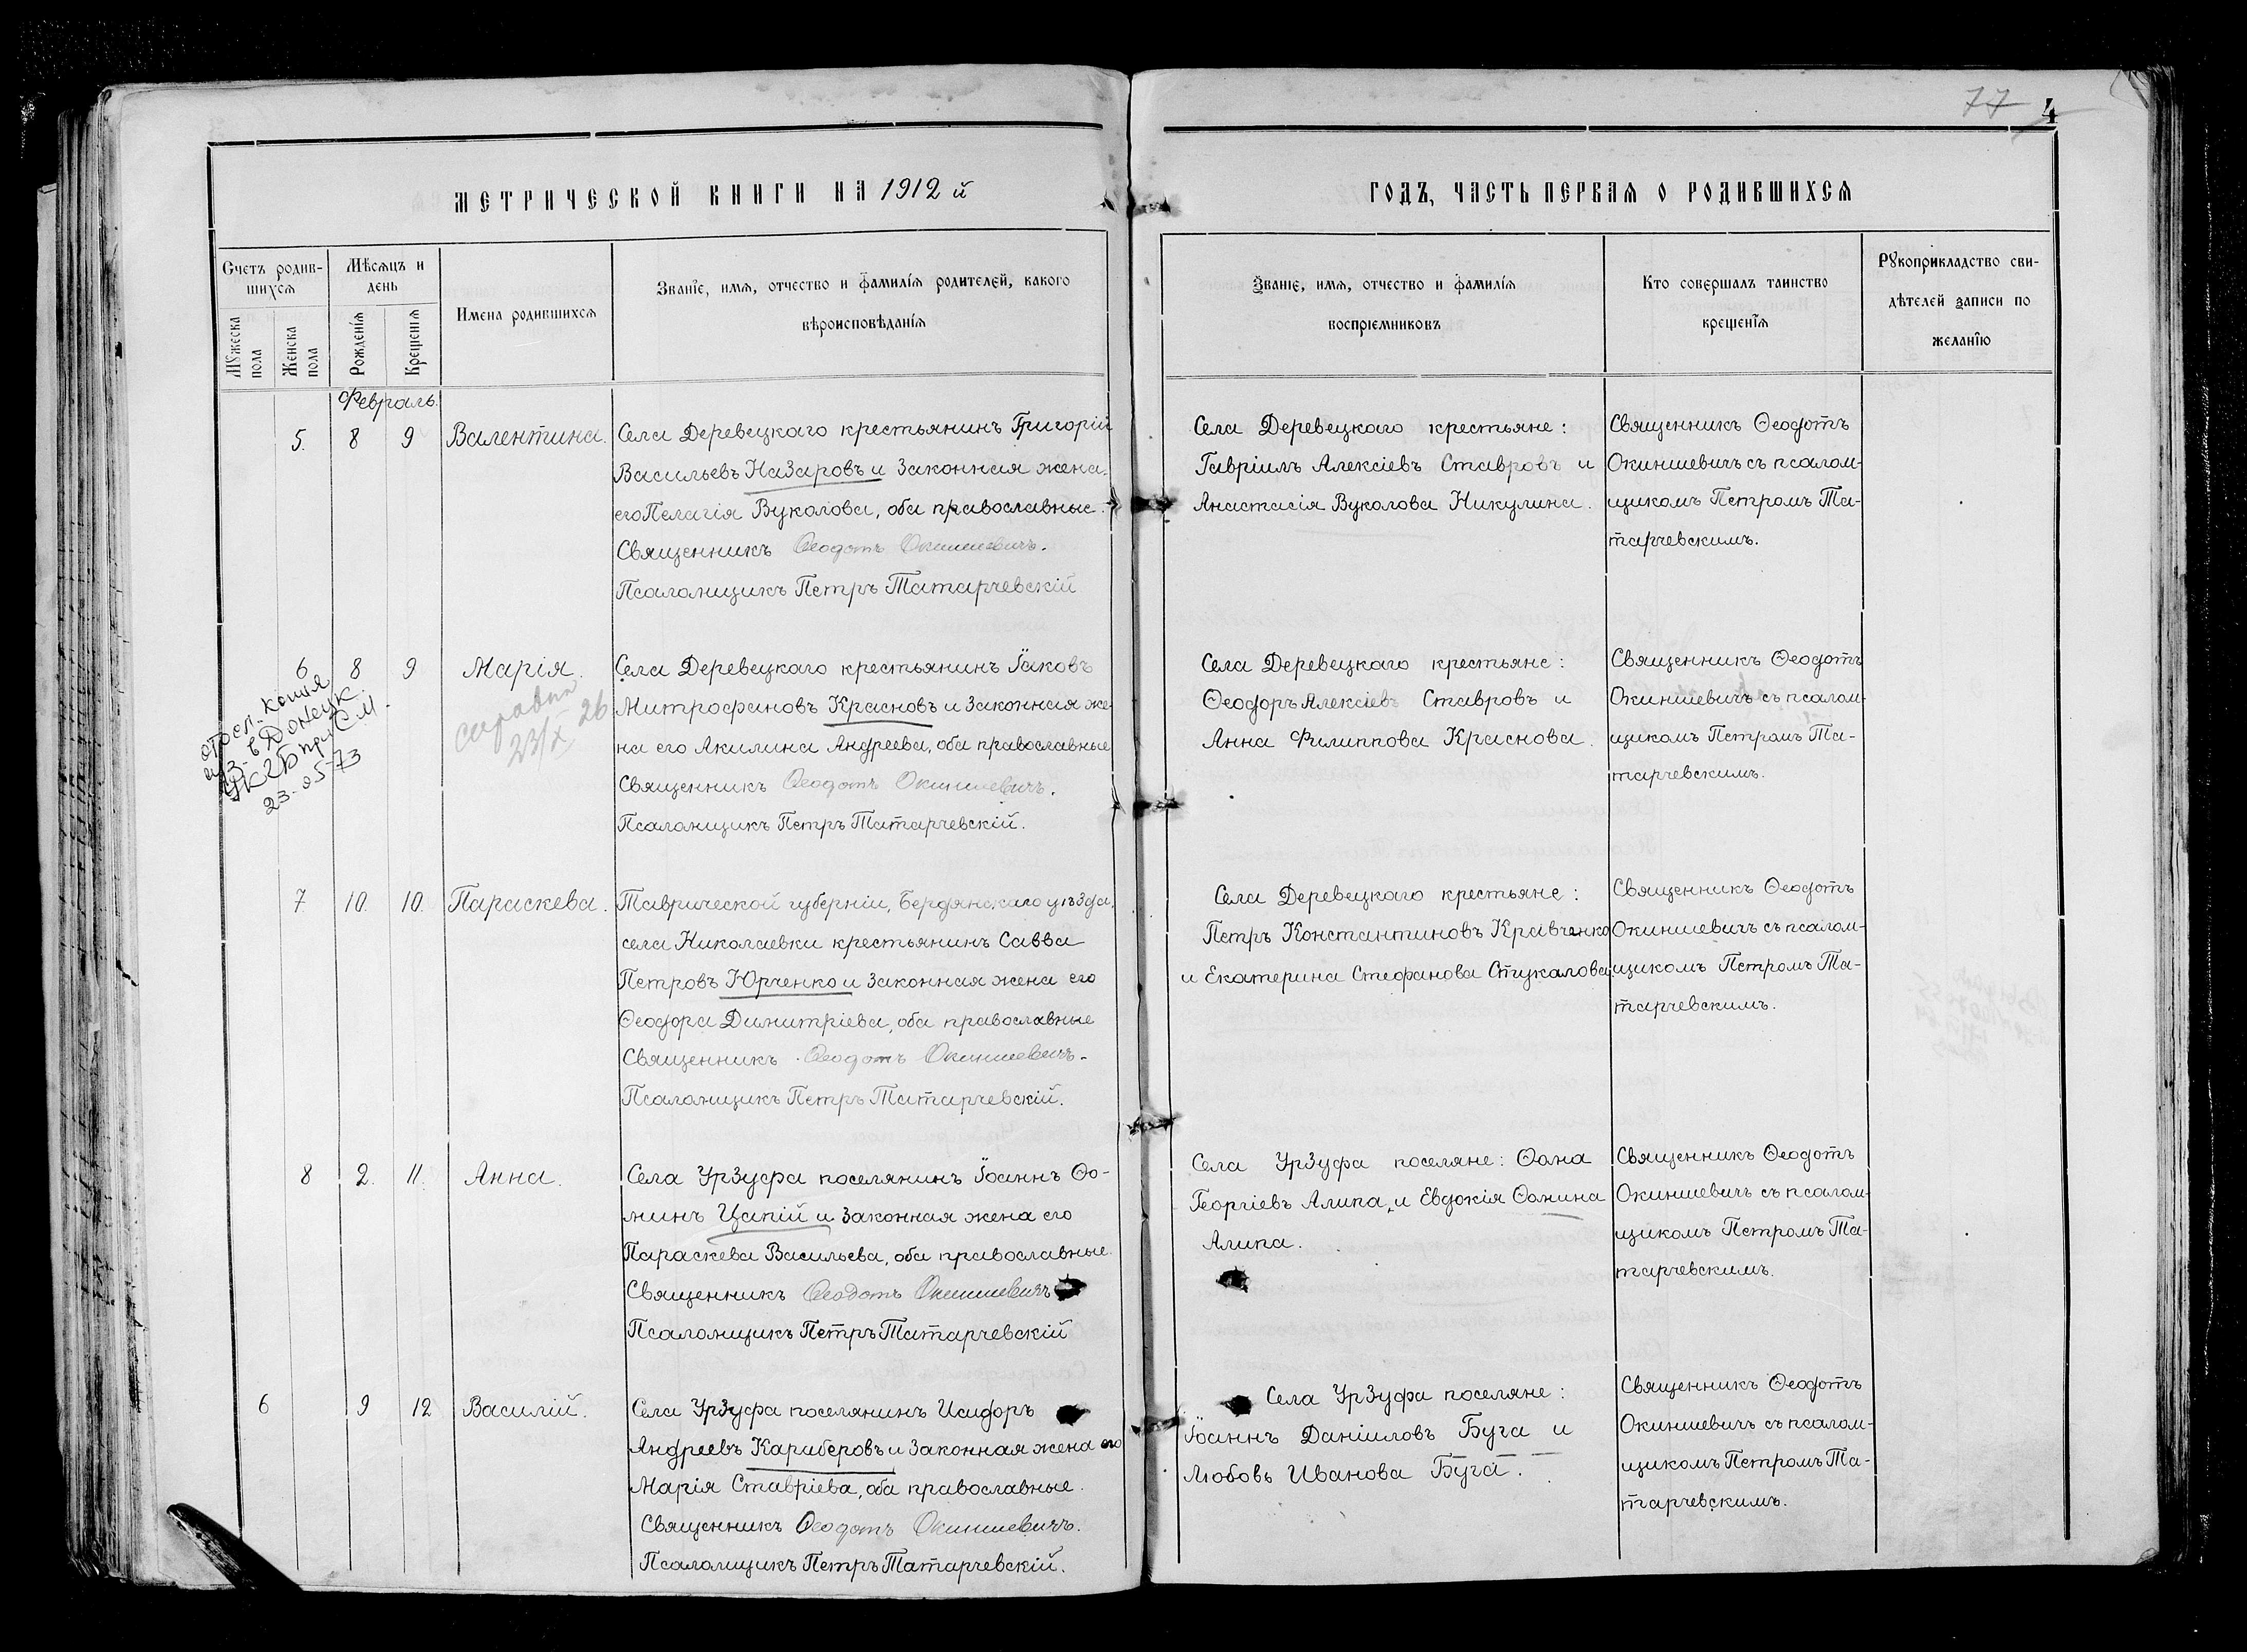 77 4
МЕТРИЧЕСКОЙ КНИГИ НА 1912 й
ГОДЪ, ЧАСТЬ ПЕРВАЯ О РОДИВШИХСЯ
Счетъ родив-
шихся
Мужеска
пола
Женска
пола
Мѣсяцъ и
день
Рожденія
Крещенія
Имена родившихся
Званіе, имя, отчество и фамилія родителей, какого
вѣроисповѣданія
Званіе, имя, отчество и фамилія
воспріемниковъ
Кто совершалъ таинство
крещенія
Рукоприкладство сви-
дѣтелей записи по
желанію
Февраль.
5. 8 9 Валентина.
Села Деревецкаго крестьянинъ Григорій
Васильевъ Назаровъ и законная жена
его Пелагія Вуколова, оба православные.
Священникъ Ѳеодотъ Окиншевичъ.
Псаломщикъ Петръ Татарчевскій
Села Деревецкаго крестьяне:
Гавріилъ Алексіевъ Ставровъ и
Анастасія Вуколова Никулина.
Священникъ Ѳеодотъ
Окиншевичъ съ псалом-
щикомъ Петромъ Та-
тарчевскимъ.
6 8 9 Марія.
справка
23/X 26
отосл. копия
в Донецк
УКГБ при СМ
23-05-73
Села Деревецкаго крестьянинъ Іаковъ
Митрофановъ Красновъ и законная же-
на его Акилина Андреева, оба православные
Священникъ Ѳеодотъ Окиншевичъ.
Псаломщикъ Петръ Татарчевскій.
Села Деревецкаго крестьяне:
Ѳеодоръ Алексіевъ Ставровъ и
Анна Филиппова Краснова.
Священникъ Ѳеодотъ
Окиншевичъ съ псалом-
щикомъ Петромъ Та-
тарчевскимъ.
7 10. 10. Параскева.
Таврической губерніи, Бердянскаго уѣзда,
села Николаевки крестьянинъ Савва
Петровъ Юрченко и законная жена его
Ѳеодора Димитріева, оба православные
Священникъ Ѳеодотъ Окиншевичъ.
Псаломщикъ Петръ Татарчевскій.
Села Деревецкаго крестьяне:
Петръ Константиновъ Кравченко
и Екатерина Стефанова Стукалова.
Священникъ Ѳеодотъ
Окиншевичъ съ псалом-
щикомъ Петромъ Та-
тарчевскимъ.
8 2. 11. Анна.
Села Урзуфа поселянинъ Іоаннъ Ѳо-
минъ Цапій и законная жена его
Параскева Васильева, оба православные.
Священникъ Ѳеодотъ Окиншевичъ
Псаломщикъ Петръ Татарчевскій
Села Урзуфа поселяне: Ѳома
Георгіевъ Алипа, и Евдокія Ѳомина
Алипа.
Священникъ Ѳеодотъ
Окиншевичъ съ псалом-
щикомъ Петромъ Та-
тарчевскимъ.
6 9 12 Василій.
Села Урзуфа поселянинъ Исидоръ
Андреевъ Кариберовъ и законная жена его
Марія Ставріева, оба православные.
Священникъ Ѳеодотъ Окиншевичъ.
Псаломщикъ Петръ Татарчевскій.
Села Урзуфа поселяне:
Іоаннъ Даніиловъ Буга и
Любовь Иванова Буга.
Священникъ Ѳеодотъ
Окиншевичъ съ псалом-
щикомъ Петромъ Та-
тарчевскимъ.